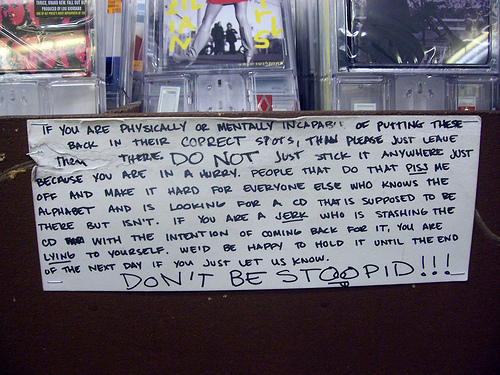 THRICE, BRAND NEW, FALL OUT BOY
PRODUCED BY LOU GIORDANO
IF YOU ARE PHYSICALLY OR MENTALLY INCAPABLE OF PUTTING THESE
BACK IN THEIR CORRECT SPOTS, THAN PLEASE JUST LEAVE
THEM THERE. DO NOT JUST STICK IT ANYWHERE JUST
BECAUSE YOU ARE IN A HURRY. PEOPLE THAT DO THAT PISS ME
OFF AND MAKE IT HARD FOR EVERYONE ELSE WHO KNOWS THE
ALPHABET AND IS LOOKING FOR A CD THAT IS SUPPOSED TO BE
THERE BUT ISN'T. IF YOU ARE A JERK WHO IS STASHING THE
CD WITH THE INTENTION OF COMING BACK FOR IT, YOU ARE
LYING TO YOURSELF. WE'D BE HAPPY TO HOLD IT UNTIL THE END
OF THE NEXT DAY IF YOU JUST LET US KNOW.
DON'T BE STOOPID!!!